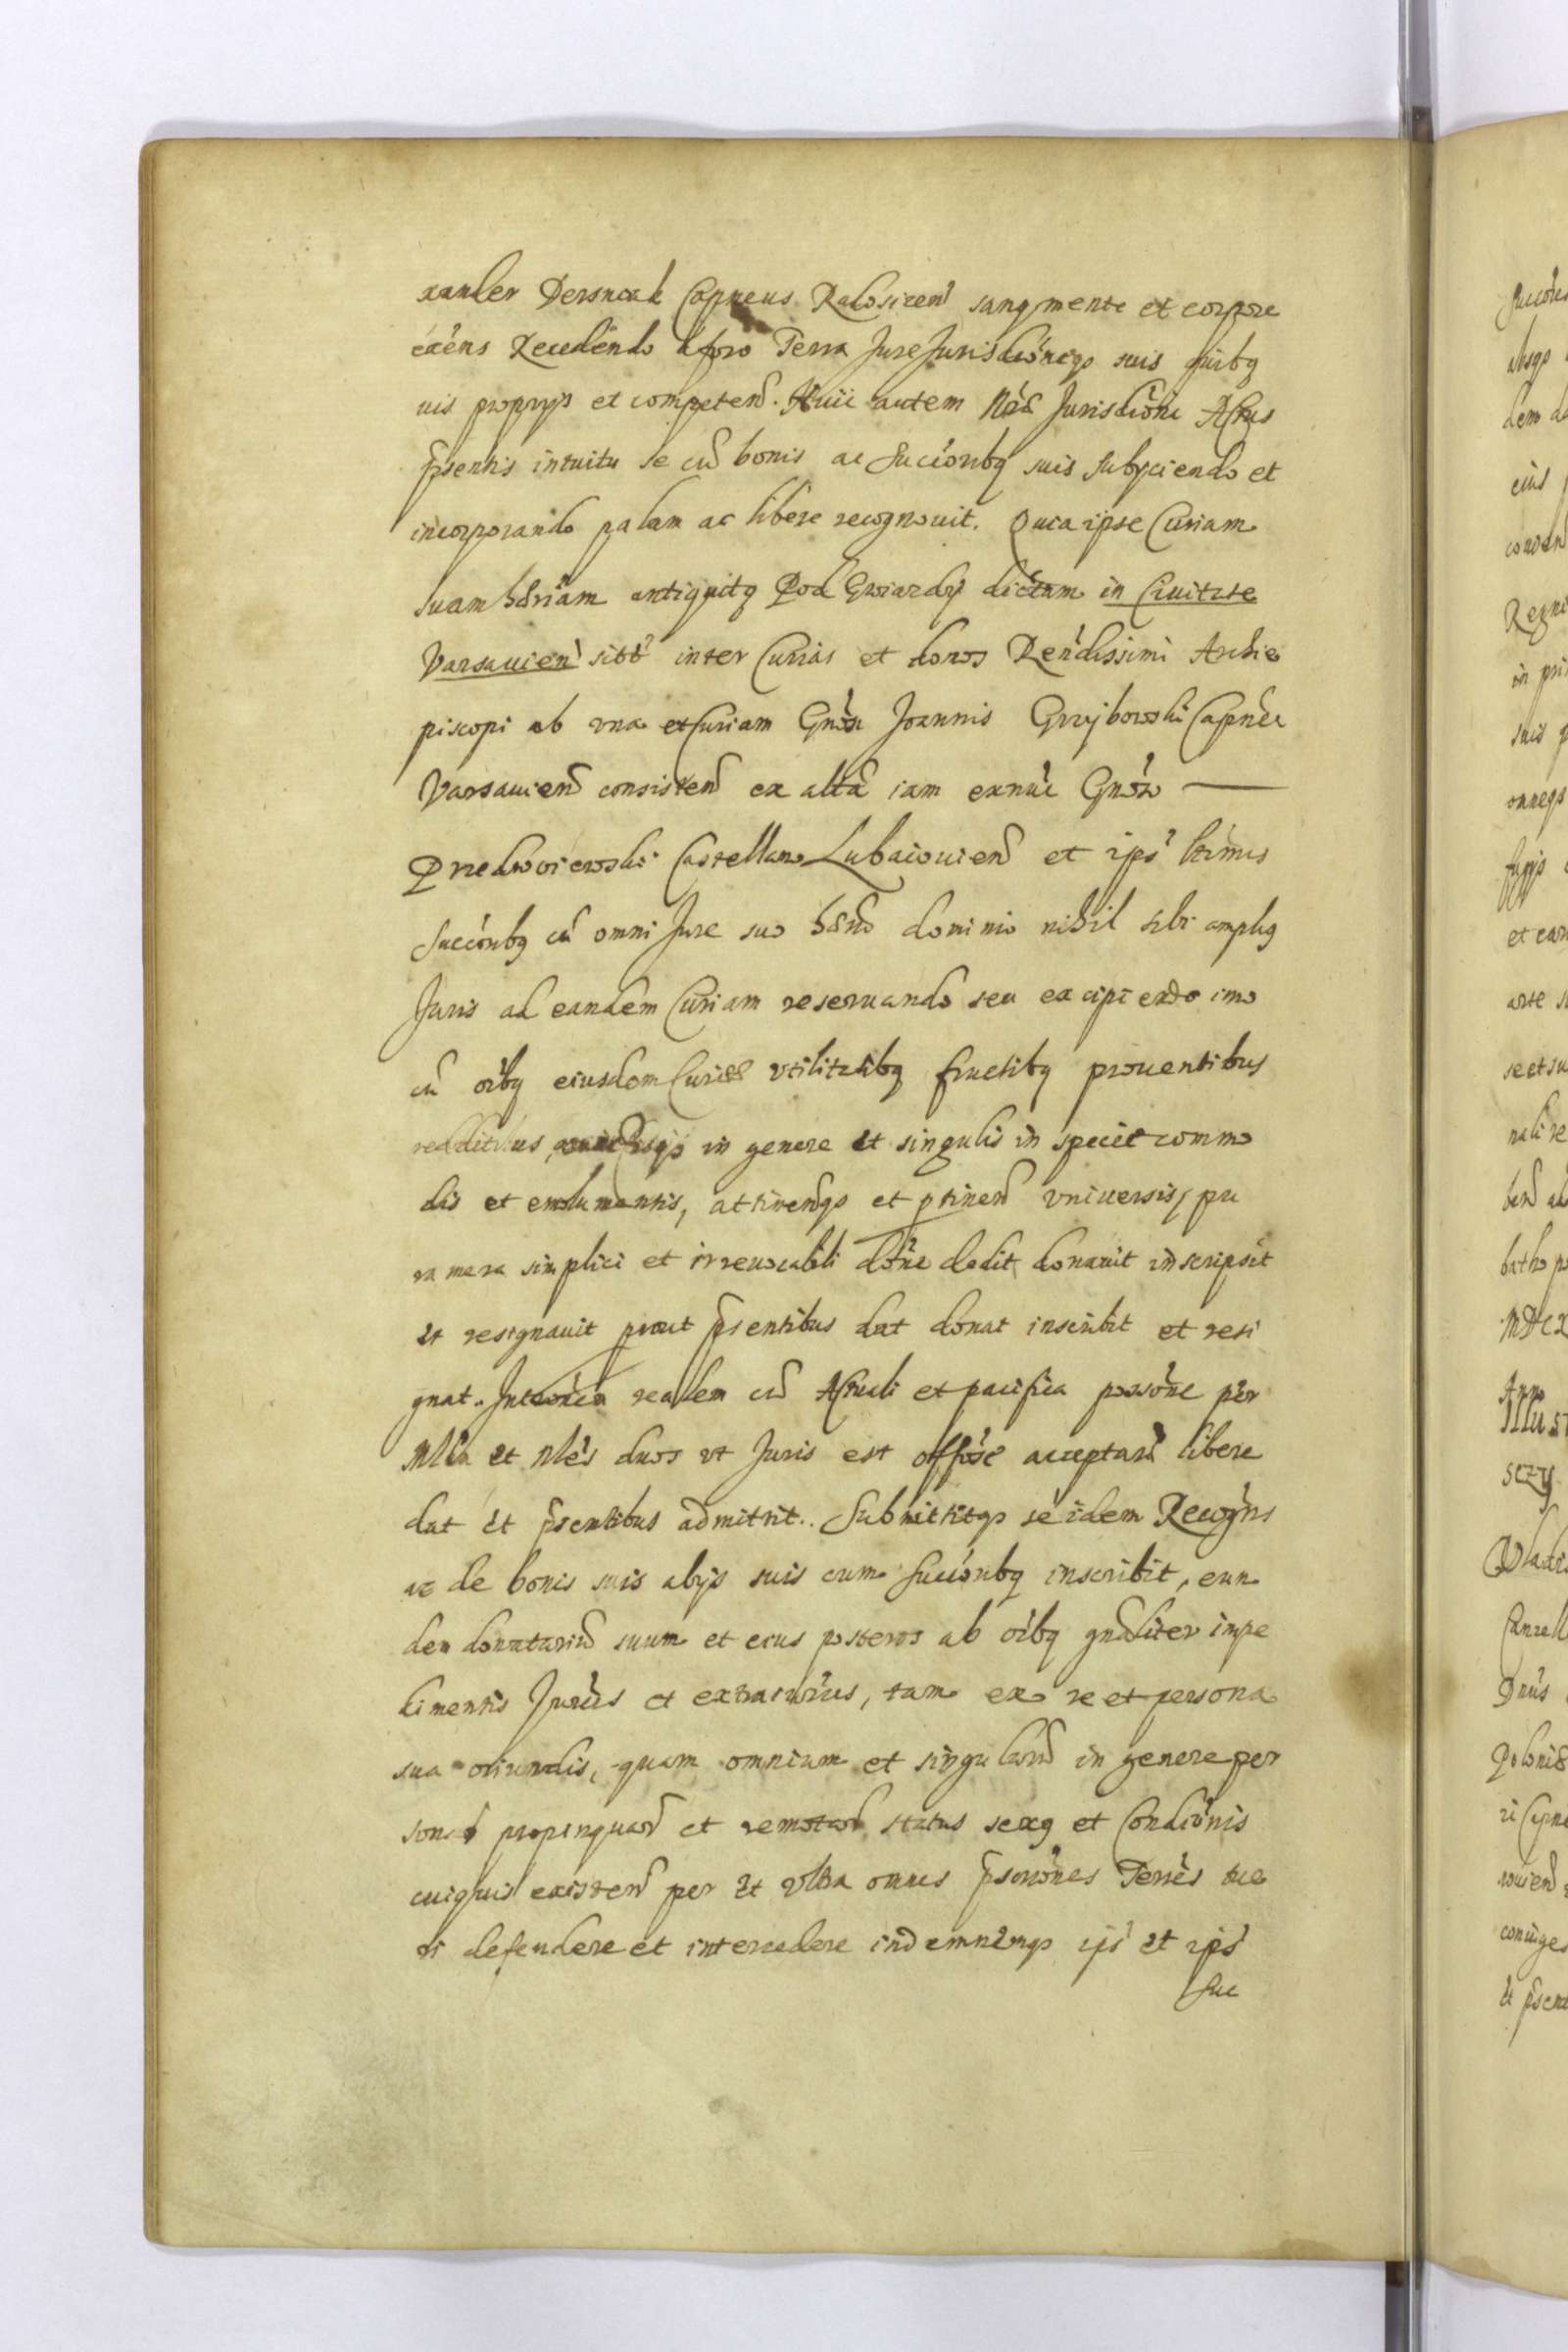 xander Dersniak Capneus Radosicen sanq mente et corpore
exēns Recedendo a foro Terra Jure Jurisdiōneq suis quibq
uis proprijs et competen. Huic autem Jurisdiōni Actus
psentis intuitu se cū bonis ac succiōnbq suis subijciendo et
incorporando palam ac libere recognouit. Quia ipse Curiam
suam antiquitq Pod Gwiazdą dictam in Ciuitate
Varsauien sitā inter Curias et domos Rendissimi Archie
piscopi ab vna et Curiam Gnōsi Joannis Grzybowski Capnei
Varsauien consisten ex altā iam exnūc Gnōso
Przedwoiewski Castellano Lubaciouien et ips ltimis
succōnbq cū omni Jure suo dominio nihil sibi amplq
Juris ad eandem Curiam reseruando seu excipiendo imo
cū oibq eiusdem Curiæ vtilitatibq fructibq prouentibus
redditibus, in genere et singulis in specie commo
dis et emolumentis, attinenq et ptinen vniuersis, pu
ra mera simplici et irreuocabili dōne dedit donauit inscripsit
et resignauit prout psentibus dat donat inscribit et resi
gnat. realem cū Actuali et pacifica possōne per
Mlēm et nlēs duos vt Juris est offōse acceptan libere
dat et psentibus admittit. Submittitq se idem Recogns
ac de bonis suis alijs suis cum succōnbq inscribit, eun
dem donatariū suum et eius posteros ab oibq gnāliter impe
dimentis Juriis et extraiuriis, tam ex re et persona
sua oriundis, quam omnium et singulorū in genere per
sonarū propinquarū et remotarū status sexq et Condiōnis
cuiqvis existen per et vltra omnes pscriōnes Terrēs tue
ri defendere et intercedere indemnēmq ips et ips
suc